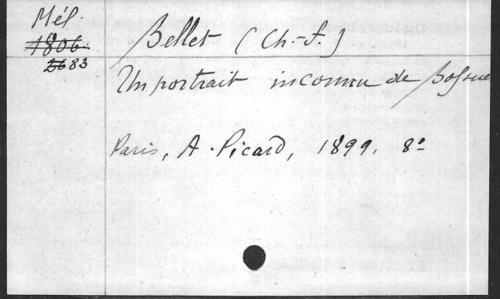 Mél.
1806
Bellet (Ch.-F.)
2683
Un portrait inconnu de Bossue
Paris, A. Picard, 1899. 8º